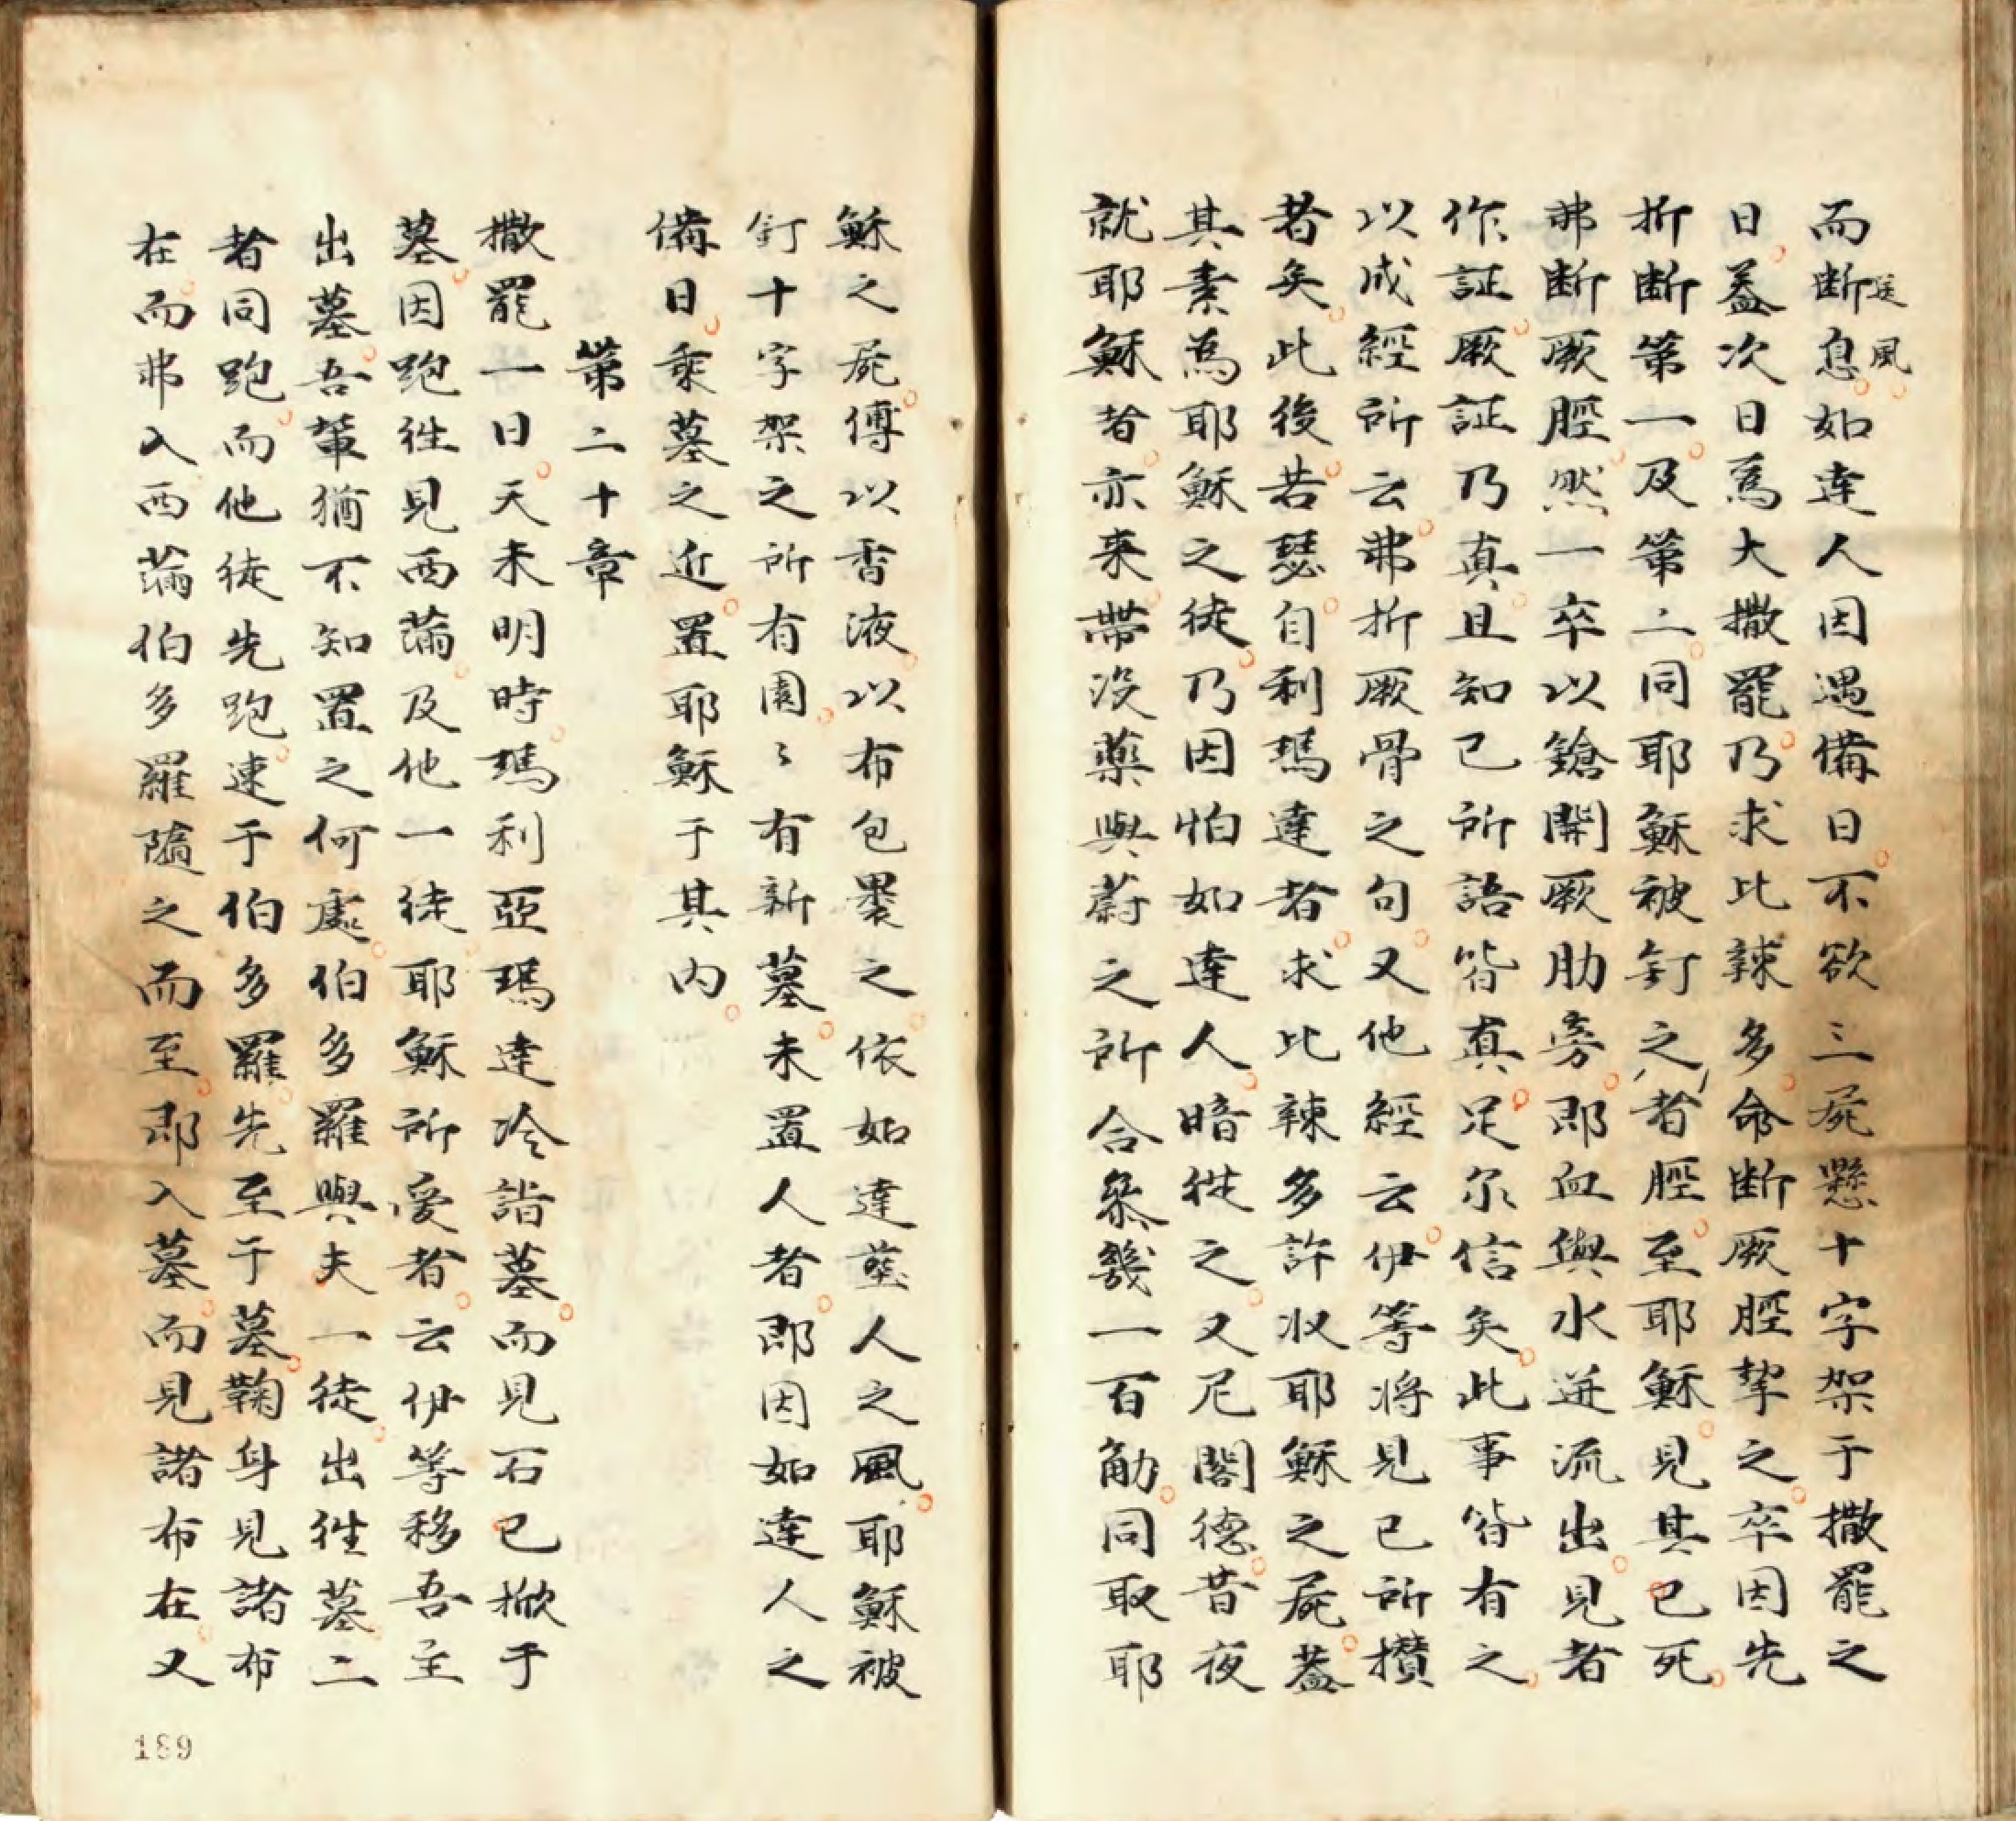 而断息如達人因遇備日不欲三屍懸十字架于撒罷之
送風
日葢次日為大撒罷乃求比辣多命断厥脛挈之卒因先
折断第一及第二同耶穌被釘之者脛至耶穌見其已死
弗断厥脛然一卒以鎗開厥肋旁即血與水迸流出見者
作証厥証乃真且知已所語皆真足尔信矣此事皆有之
以成經所云弗折厥骨之句又他經云伊等將見已所攢
者矣此後若瑟自利瑪達者求比辣多許收耶穌之屍葢
其素為耶穌之徒乃因怕如達人暗從之又尼閣德昔夜
就耶穌者亦来帶沒藥與蔚之所合參幾一百觔同取耶
穌之屍傅以香液以布包裹之依如達塟人之風耶穌被
釘十字架之所有園〻有新墓未置人者即因如達人之
備日乘墓之近置耶穌于其內
第二十章
撒罷一日天未明時瑪利亞瑪達冷詣墓而見石已掀于
墓因跑徃見西滿及他一徒耶穌所愛者云伊等移吾主
出墓吾輩猶不知置之何處伯多羅與夫一徒出徃墓二
者同跑而他徒先跑速于伯多羅先至于墓鞠身見諸布
在而弗入西滿伯多羅隨之而至即入墓而見諸布在又
189